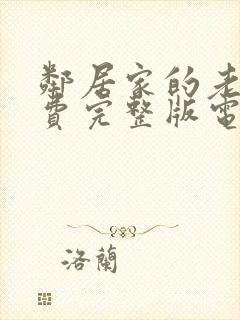 鄰居家的老
費完整版電
洛蘭